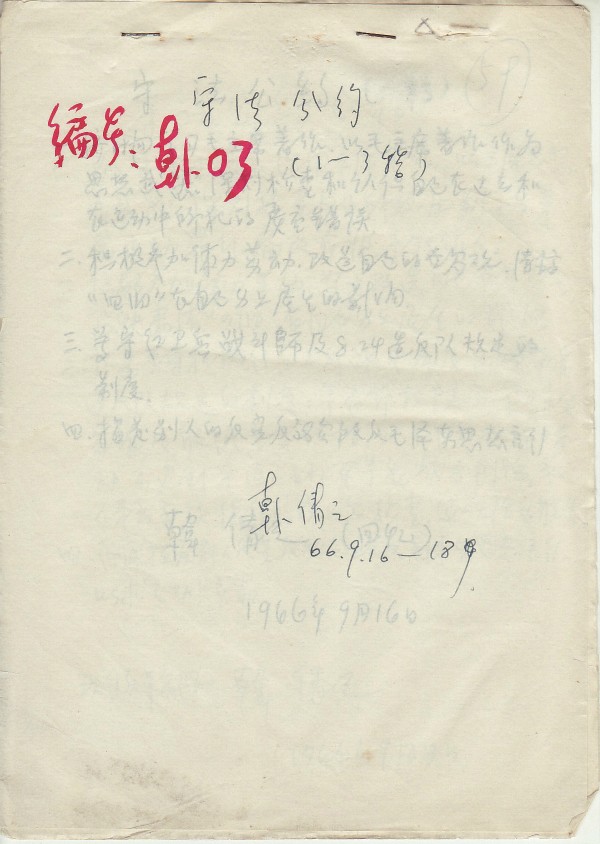 守法公约
(1—3稿)
编号:韩03
毛主席著作,以毛主席著作作为
思想武器,深刻检查和认识自己在过去和
在运动中所犯的严重错误
二、积极参加体力劳动,改造自己的世界观,清除
“四旧”在自己身上产生的影响.
三、遵守红卫兵战斗师及8.24造反队指定的
制度.
四、揭发别人的反党反社会反毛泽东思想言行
韩倩之
66.9.16—18日
韓倩
1966年9月16日